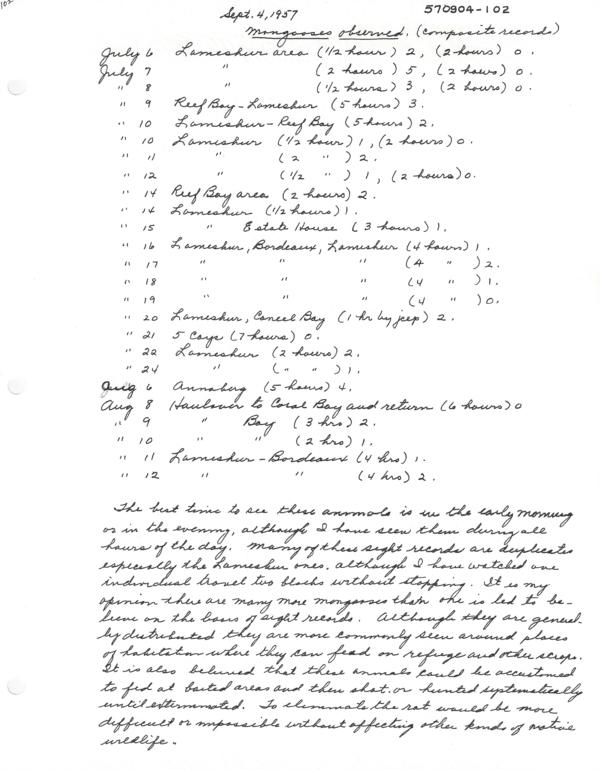 102
Sept. 4, 1957 570904-102
Mongooses observed. (composite records)
July 6 Lameshur area (1/2 hour) 2, (2 hours) 0.
July 7 " (2 hours) 5, (2 hours) 0.
" 8 " (1/2 hours) 3, (2 hours) 0.
" 9 Reef Bay-Lameshur (5 hours) 3.
" 10 Lameshur-Reef Bay (5 hours) 2.
" 10 Lameshur (1/2 hour) 1, (2 hours) 0.
" 11 " (2 " ) 2.
" 12 " (1/2 " ) 1, (2 hours) 0.
" 14 Reef Bay area (2 hours) 2.
" 14 Lameshur (1/2 hours) 1.
" 15 " Estate House (3 hours) 1.
" 16 Lameshur, Bordeaux, Lameshur (4 hours) 1.
" 17 " " " (4 " ) 2.
" 18 " " " (4 " ) 1.
" 19 " " " (4 " ) 0.
" 20 Lameshur, Caneel Bay (1 hr by jeep) 2.
" 21 5 Cays (7 hours) 0.
" 22 Lameshur (2 hours) 2.
" 24 " ( " " ) 1.
Aug 6 Annaberg (5 hours) 4.
Aug 8 Haulover to Coral Bay and return (6 hours) 0
" 9 " Bay (3 hrs) 2.
" 10 " " (2 hrs) 1.
" 11 Lameshur-Bordeaux (4 hrs) 1.
" 12 " " (4 hrs) 2.
The best time to see these animals is in the early morning
or in the evening, although I have seen them during all
hours of the day. Many of these sight records are duplicates
especially the Lameshur ones, although I have watched one
individual travel two blocks without stopping. It is my
opinion there are many more mongooses than one is led to be-
lieve on the basis of sight records. Although they are general-
ly distributed they are more commonly seen around places
of habitation where they can feed on refuge and other scraps.
It is also believed that these animals could be accustomed
to fed at baited areas and then shot, or hunted systematically
until exterminated. To eliminate the rat would be more
difficult or impossible without affecting other kinds of native
wildlife.